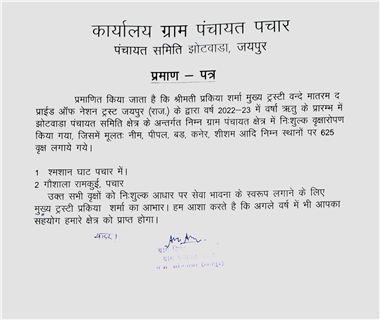 कार्यालय ग्राम पंचायत पचार
पंचायत समिति झोटवाडा, जयपुर
प्रमाण – पत्र
प्रमाणित किया जाता है कि श्रीमती प्रकिया शर्मा मुख्य ट्रस्टी वन्दे मातरम द
प्राईड ऑफ नेशन ट्रस्ट जयपुर (राज.) के द्वारा वर्ष 2022–23 में वर्षा ऋतु के प्रारम्भ में
झोटवाडा पंचायत समिति क्षेत्र के अन्तर्गत निम्न ग्राम पंचायत क्षेत्र में निःशुल्क वृक्षारोपण
किया गया, जिसमें मूलतः नीम, पीपल, बड़, कनेर, शीशम आदि निम्न स्थानों पर 625
वृक्ष लगाये गये।
1 श्मशान घाट पचार में।
2 गौशाला रामकुई, पचार
उक्त सभी वृक्षों को निःशुल्क आधार पर सेवा भावना के स्वरूप लगाने के लिए
मुख्य ट्रिस्टी प्रकिया शर्मा का आभार। हम आशा करते है कि अगले वर्ष में भी आपका
सहयोग हमारे क्षेत्र को प्राप्त होगा।